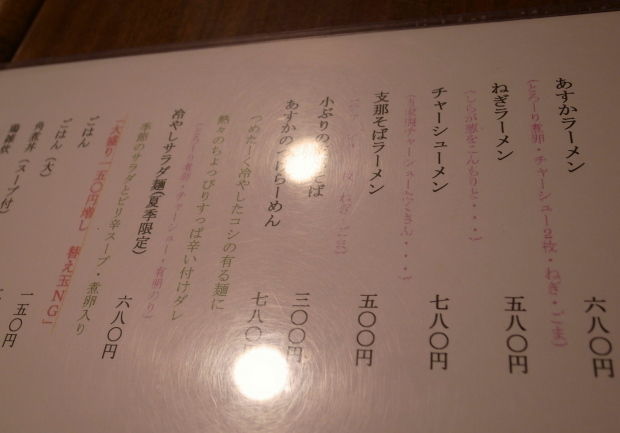 あすかラーメン 六八〇円
(とろーり煮卵・チャーシュー2枚・ねぎ・ごま)
ねぎラーメン 五八〇円
(しらが葱をこんもりと・・・)
チャーシューメン 七八〇円
チャーシューたくさん・・・)
支那そばラーメン 五〇〇円
ねぎ・ごま)
小ぶりの そば 三〇〇円
あすかの けらーめん 七八〇
つめたーく冷やしたコシの有る麺に
熱々のちょっぴりすっぱ辛い付けダレ
(とろーり煮卵・チャーシュー・有明のり)
冷やしサラダ麺(夏季限定) 六八〇円
季節のサラダとピリ辛スープ・煮卵入り
「大盛り一五〇円増し 替え玉NG」
ごはん 一五〇円
ごはん (大)
角煮丼 (スープ付)